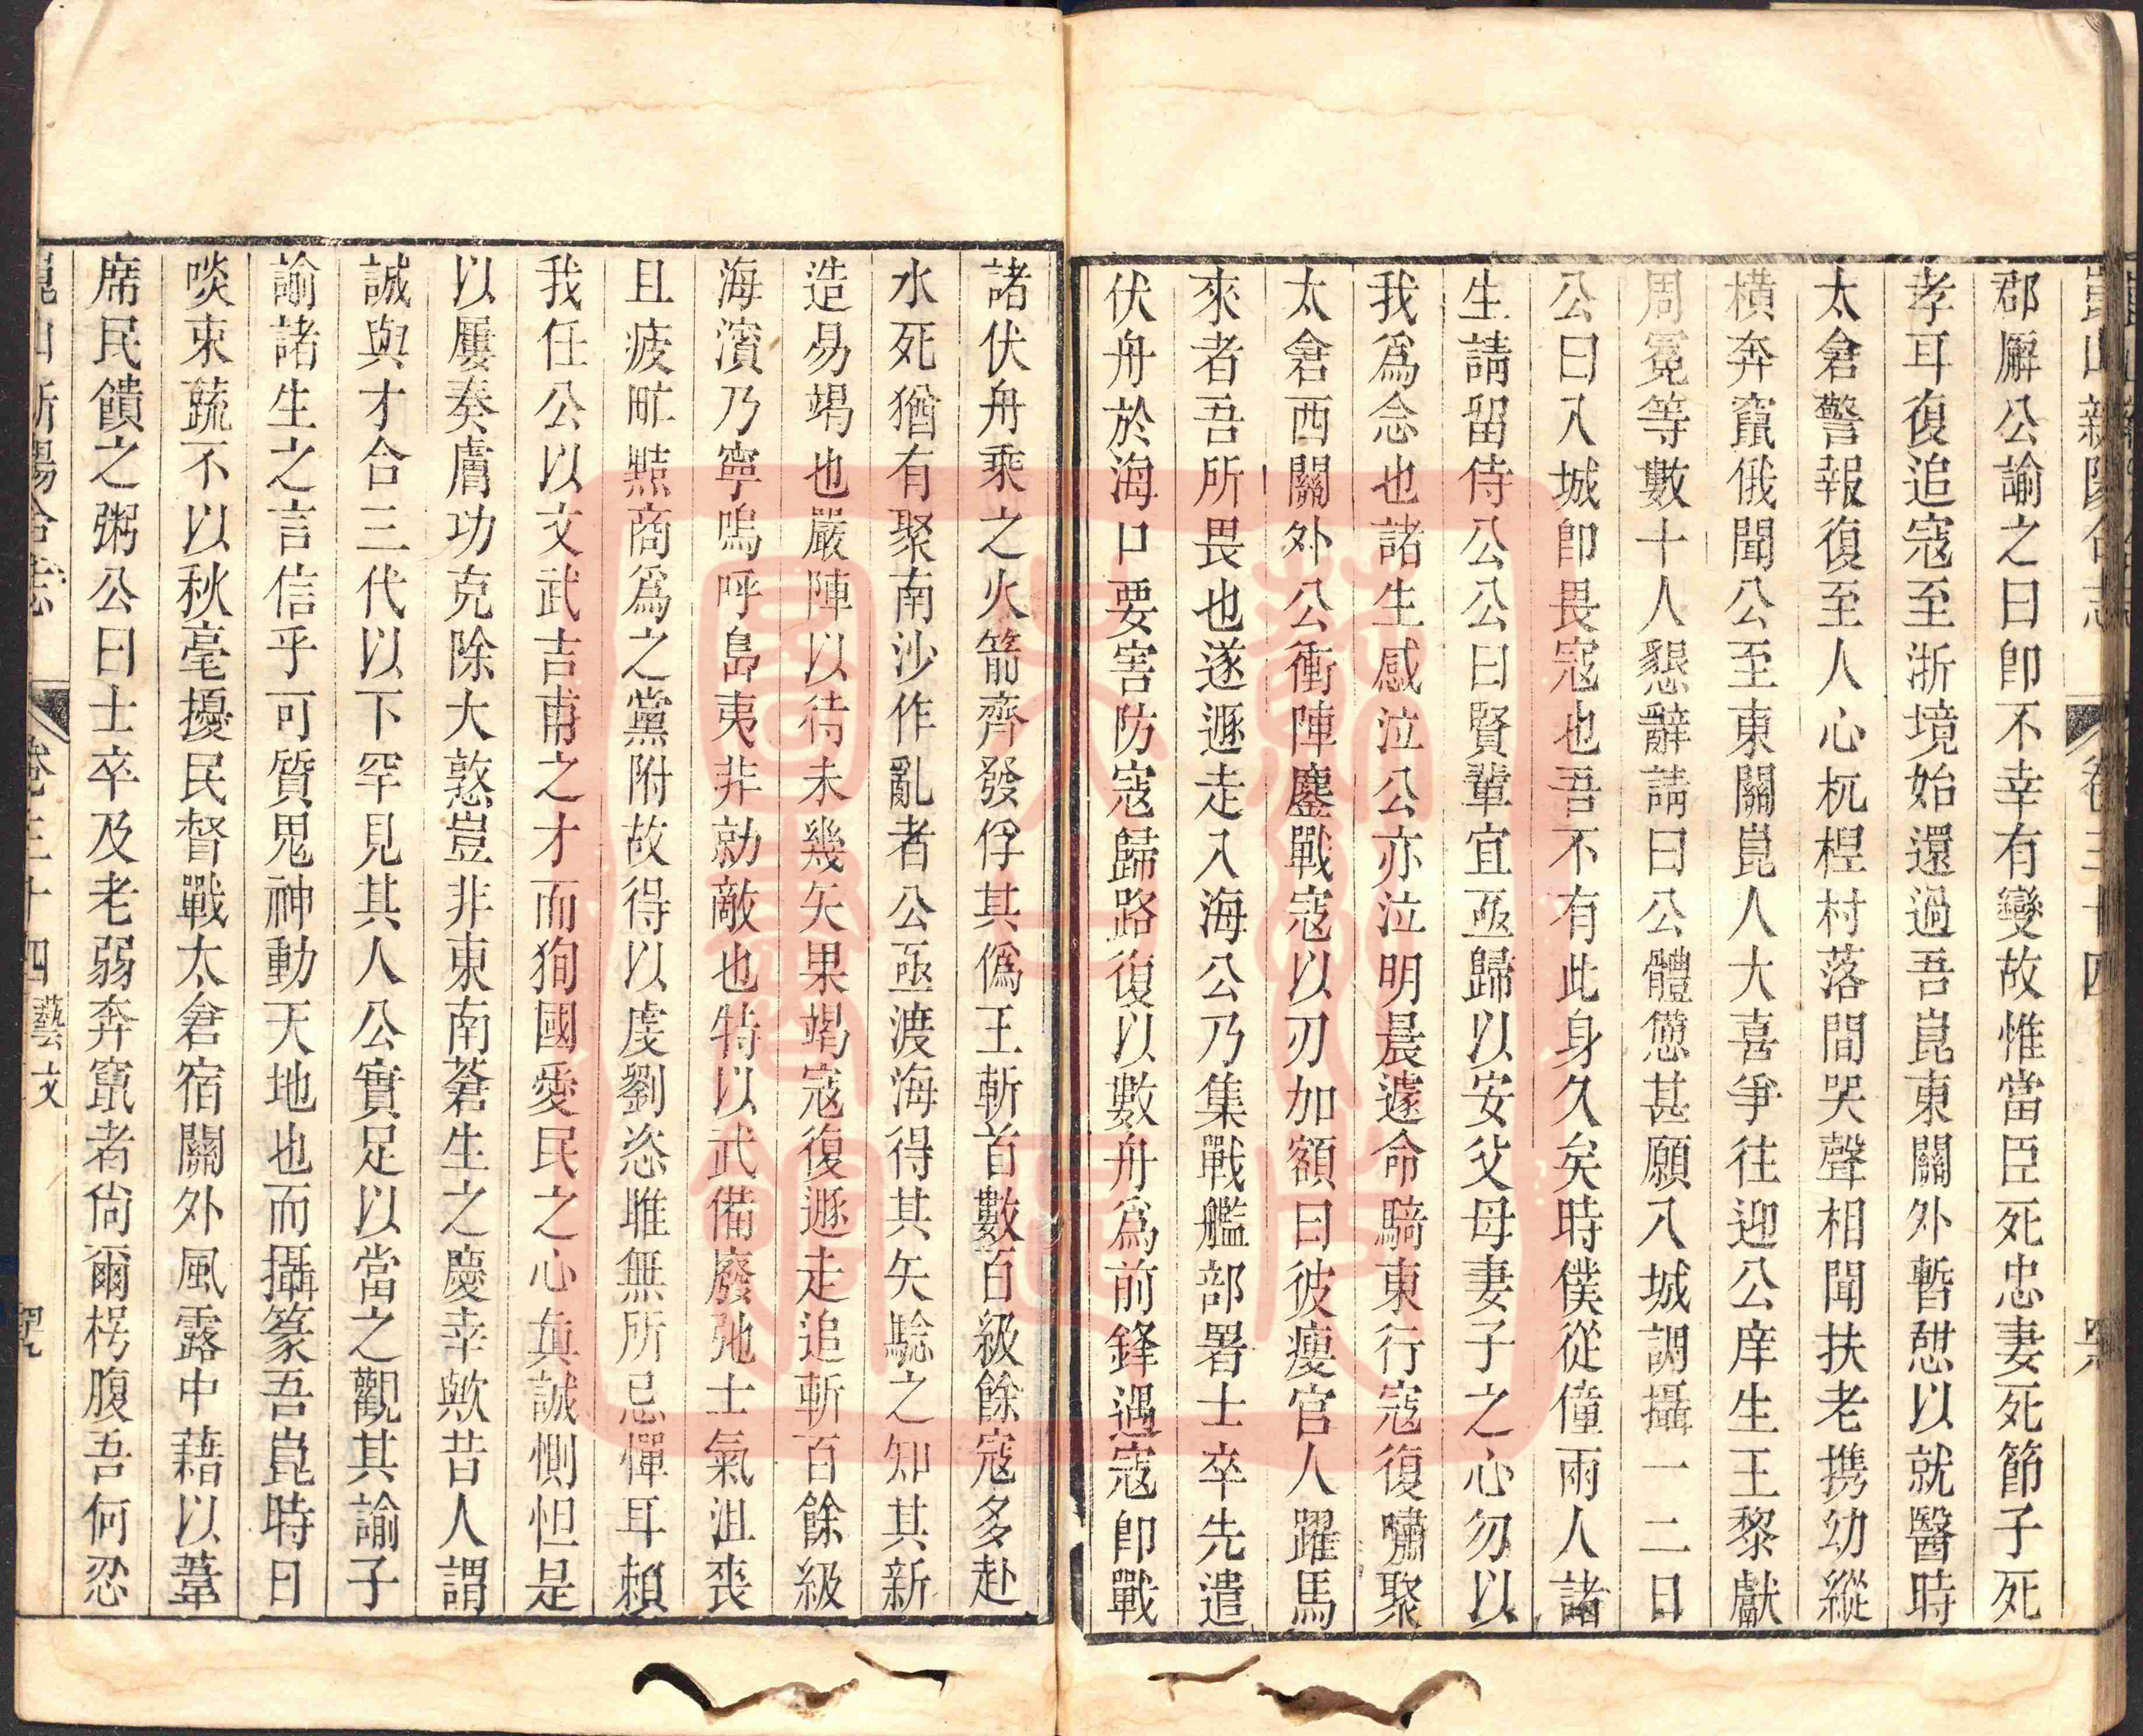 崑山新陽合志 卷三十四
郡廨公諭之曰卽不幸有變故惟當臣死忠妻死節子死
孝耳復追寇至浙境始還過吾崑東關外暫憇以就醫時
太倉警報復至人心杌桯村落間哭聲相聞扶老携幼縱
橫奔竄俄聞公至東關崑人大喜爭往迎公庠生王黎獻
周冕等數十人懇辭請曰公體憊甚願入城調攝一二日
公曰入城卽畏寇也吾不有此身久矣時僕從僮兩人諸
生請留侍公公曰賢輩宜亟歸以安父母妻子之心勿以
我爲念也諸生感泣公亦泣明晨遽命騎東行寇復嘯聚
太倉西關外公衝陣鏖戰寇以刃加額曰彼瘦官人躍馬
來者吾所畏也遂遯走入海公乃集戰艦部署士卒先遣
伏舟於海口要害防寇歸路復以數舟爲前鋒遇寇卽戰
諸伏舟乘之火箭齊發俘其僞王斬首數百級餘寇多赴
水死猶有聚南沙作亂者公亟渡海得其矢騐之知其新
造易竭也嚴陣以待未幾矢果竭寇復遯走追斬百餘級
海濱乃寧嗚呼島夷非勍敵也特以武備廢弛士氣沮喪
且疲甿黠商爲之黨附故得以虔劉恣睢無所忌憚耳賴
我任公以文武吉甫之才而狥國愛民之心眞誠惻怛是
以屢奏膚功克除大憝豈非東南蒼生之慶幸歟昔人謂
誠與才合三代以下罕見其人公實足以當之觀其諭子
諭諸生之言信乎可質鬼神動天地也而攝篆吾崑時日
啖束蔬不以秋毫擾民督戰太倉宿關外風露中藉以葦
席民饋之粥公曰士卒及老弱奔竄者尙爾枵腹吾何忍
崑山新陽合志 卷三十四 藝文